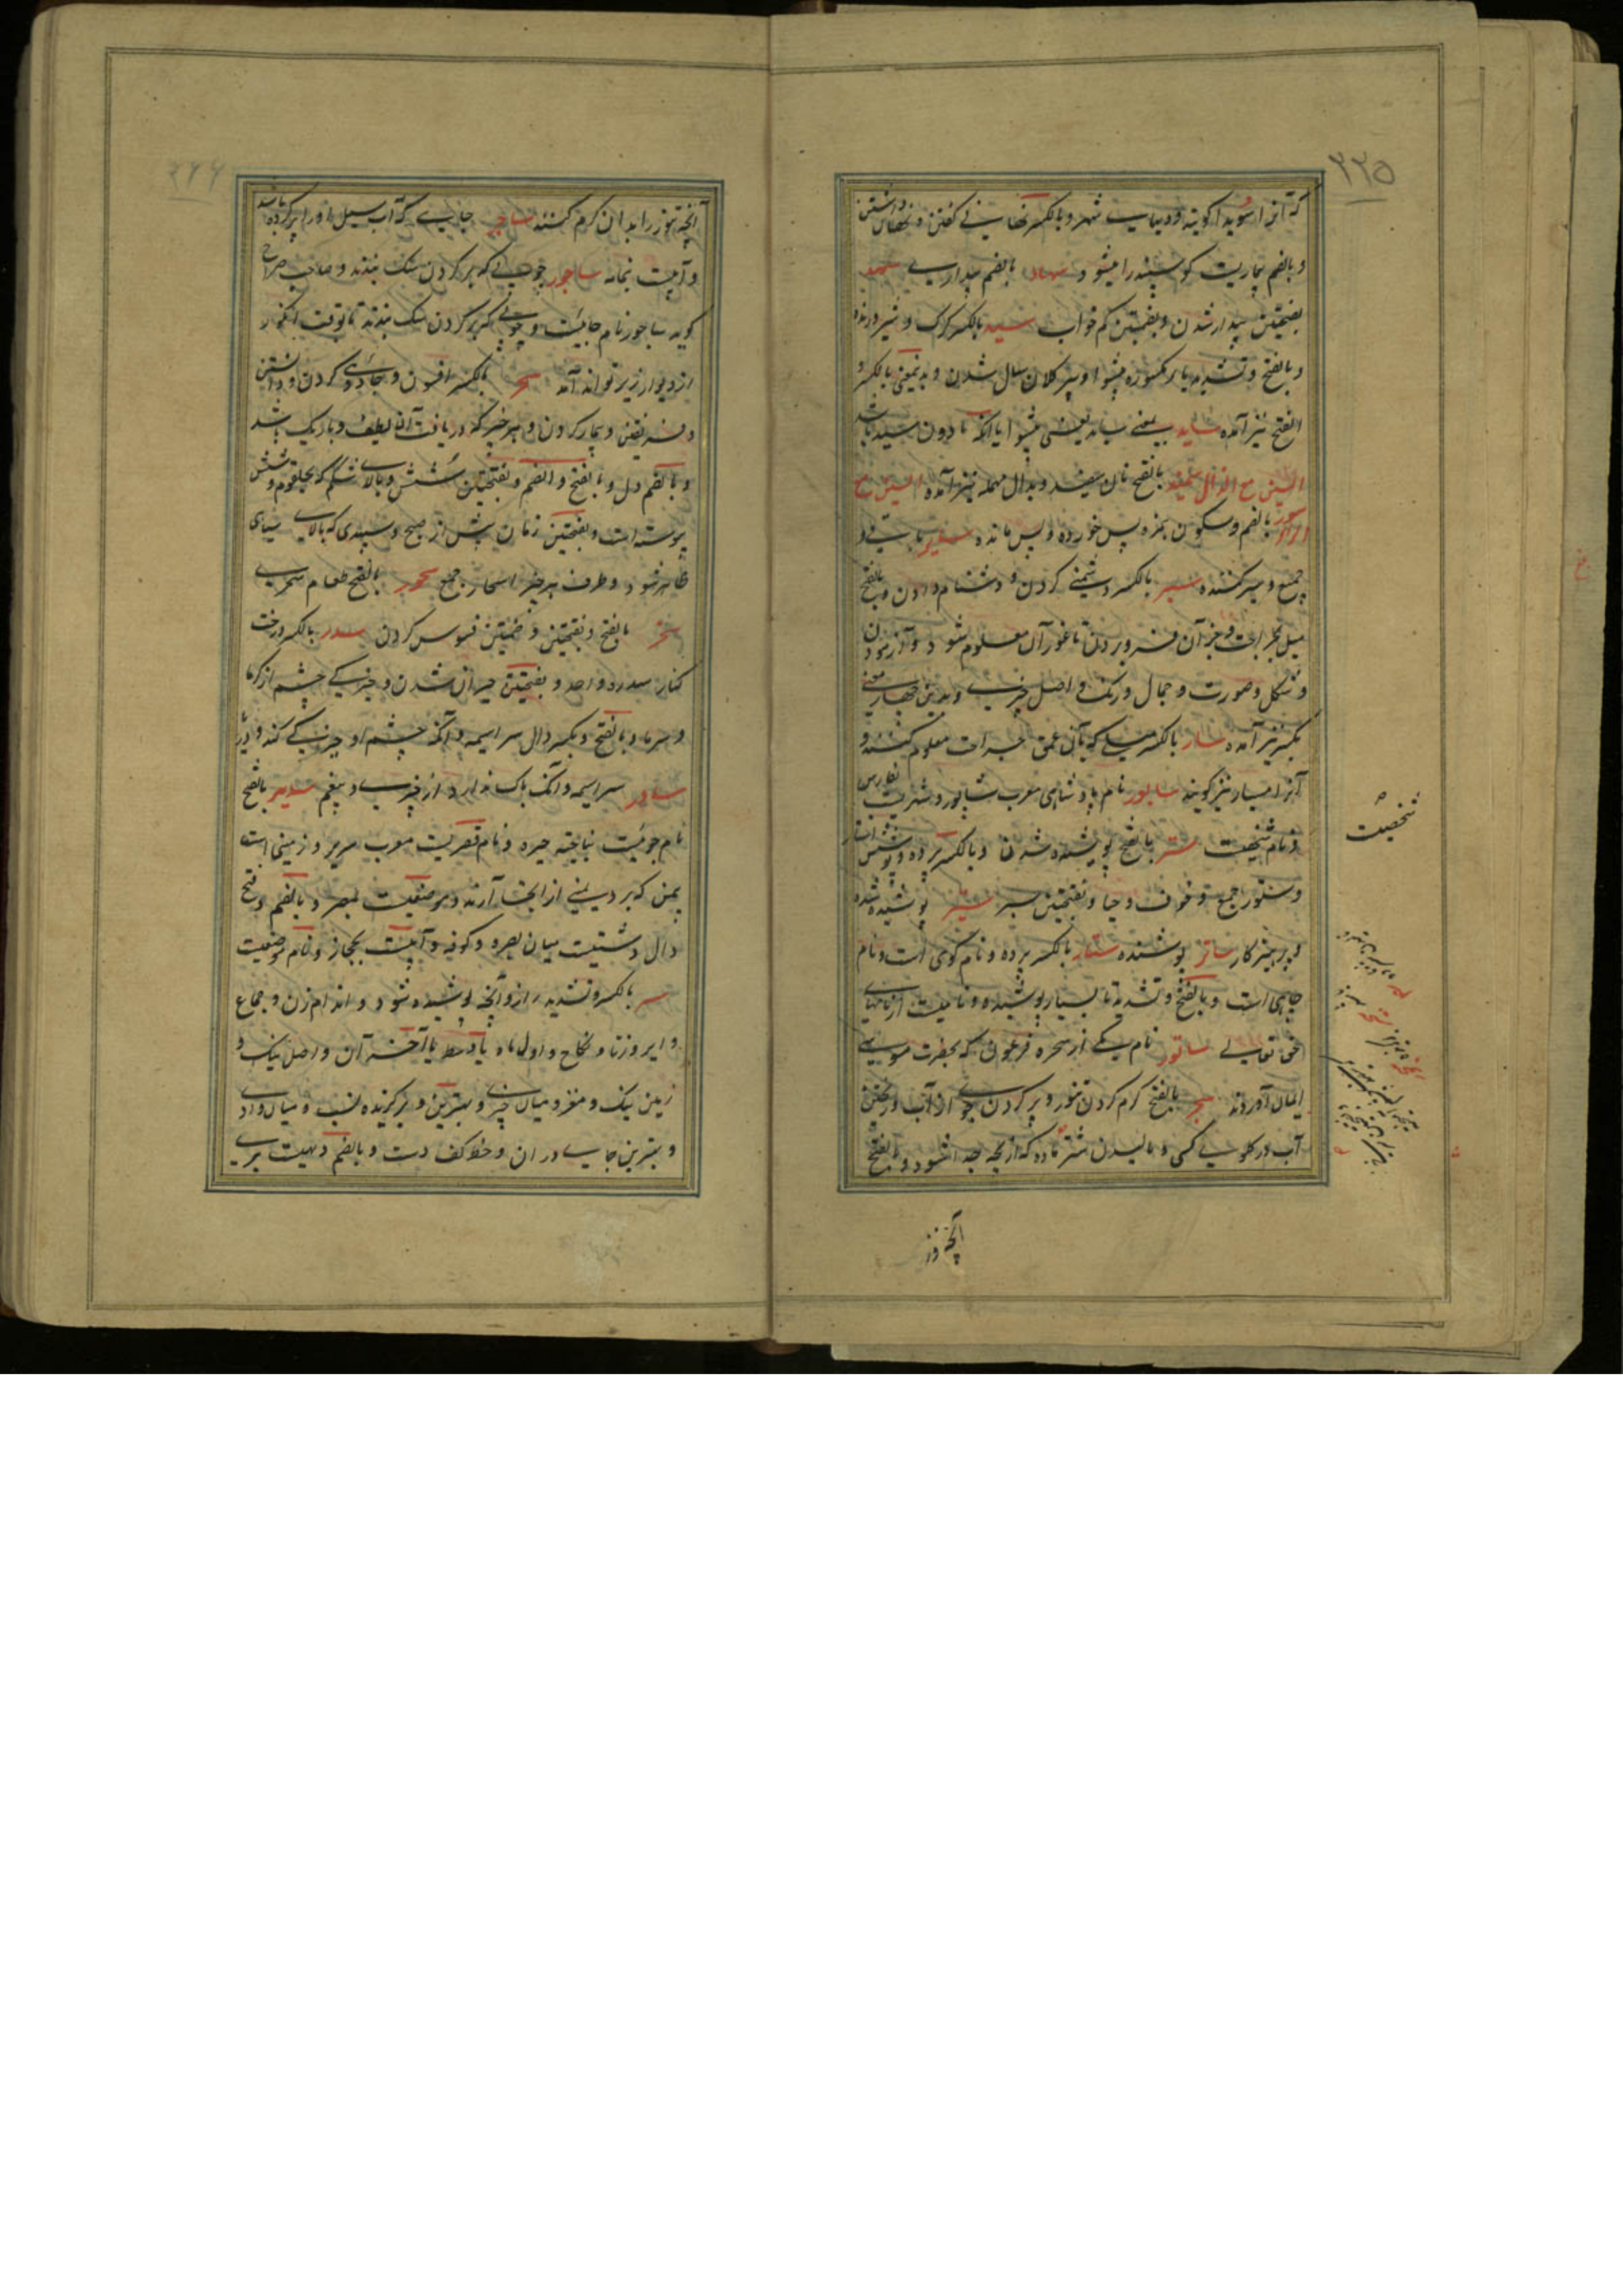 ۲۲۵
که آنرا سوید اگویند و دیهای شهر و بالکسر نهانی گفتن و نهان داشتن
و بالضم بیماریست گوسپند را میشود سهاد بالضم بیداری سهد
بفتحتین بیدار شدن و بضمتین کم خواب سید بالکسر گرگ و شیر درنده
و بالفتح و تشدید یا مکسوره پیشوا و بز کلان سال شدن و بدینمعنی بالکسر و
الفتح نیز آمده ساید بمعنی سید یعنی پیشوا یا آنکه تا دون سید باشد
السین مع الذال سمیذ بالفتح نان سفید و بدال مهمله نیز آمده السین مع
الراء سور بالضم و سکون همزه پس خورده و پس مانده سایر باقی و
جمع و سیر کننده سبر بالکسر دشمنی کردن و دشنام دادن و بالفتح
میل بجراحت و جز آن فرو بردن تا غور آن معلوم شود و آزمودن
و شکل و صورت و جمال و رنگ و اصل چیزی و بدین چهار معنی
بکسر نیز آمده سبار بالکسر میلی که بآن عمق جراحت معلوم کنند و
آنرا مسبار نیز گویند سابور نام پادشاهی معرب شاپور و شهریست بفارس
و نام شخصیت ستر بالفتح پوشیده شدن و بالکسر پرده و پوشش استار
و ستور جمع و خوف و حیا و بفتحتین سپر ستیر پوشیده شده
و پرهیزکار ساتر پوشنده ستار بالکسر پرده و نام کوهی است و نام
جاهی است و بالفتح و تشدید تا بسیار پوشیده و نامیست از نامهای
حق تعالی ساتور نام یکی از سحره فرعون که بحضرت موسی
ایمان آوردند سجر بالفتح گرم کردن تنور و پر کردن جوی از آب و ریختن
آب در گلوی کسی و نالیدن شتر ماده که از بچه جدا شود و بالفتح
آنچه تنور
شخصیت
۲۲۶
آنچه تنور را بدان گرم کنند ساجر جایی که آب سیل او را پر کرده باشد
و آبیست بیمامه ساجور چوبی که بر گردن سگ بندند و صاحب صراح
گوید ساجور نام جاییست و چوبی که بر گردن سگ بندند تا بوقت انگور
از دیوار زیر نتواند آمد سحر بالکسر افسون و جادوی کردن و دانستن
و فریفتن و بیمار کردن و هر چیز که دریافت آن لطیف و باریک باشد
و بالضم دل و بالفتح و الضم و بفتحتین شش و بالای شکم که بحلقوم و شش
پیوسته است و بفتحتین زمان پیش از صبح و سپیدی که بالای سیاهی
ظاهر شود و طرف هر چیز اسحار جمع سحور بالفتح طعام سحری
سخر بالفتح و بفتحتین و ضمتین فسوس کردن سدر بالکسر درخت
کنار سدره واحد و بفتحتین حیران شدن و خیرگی چشم از گرما
و سرما و بالفتح و بکسر دال سراسیمه و آنکه چشم او خیرگی کند و دریا
سادر سراسیمه و آنکه باک ندارد از چیزی و بیغم سدیر بالفتح
نام جوئیست بناحیه حیره و نام قصریست معرب سریر و زمینی است
بیمن که برد یمنی از آنجا آرند و موضعیست بمصر و بالضم و فتح
دال دشتیست میان بصره و کوفه و آبیست بحجاز و نام موضعیست
سر بالکسر و تشدید راز و آنچه پوشیده شود و اندام زن و جماع
و ایر و زنا و نکاح و اول ماه یا وسط یا آخر آن و اصل نیک و
زمین نیک و مغز و میان چیزی و بهترین و برگزیده نسب و میان وادی
و بهترین جای در آن و خط کف دست و بالضم دهیست بری